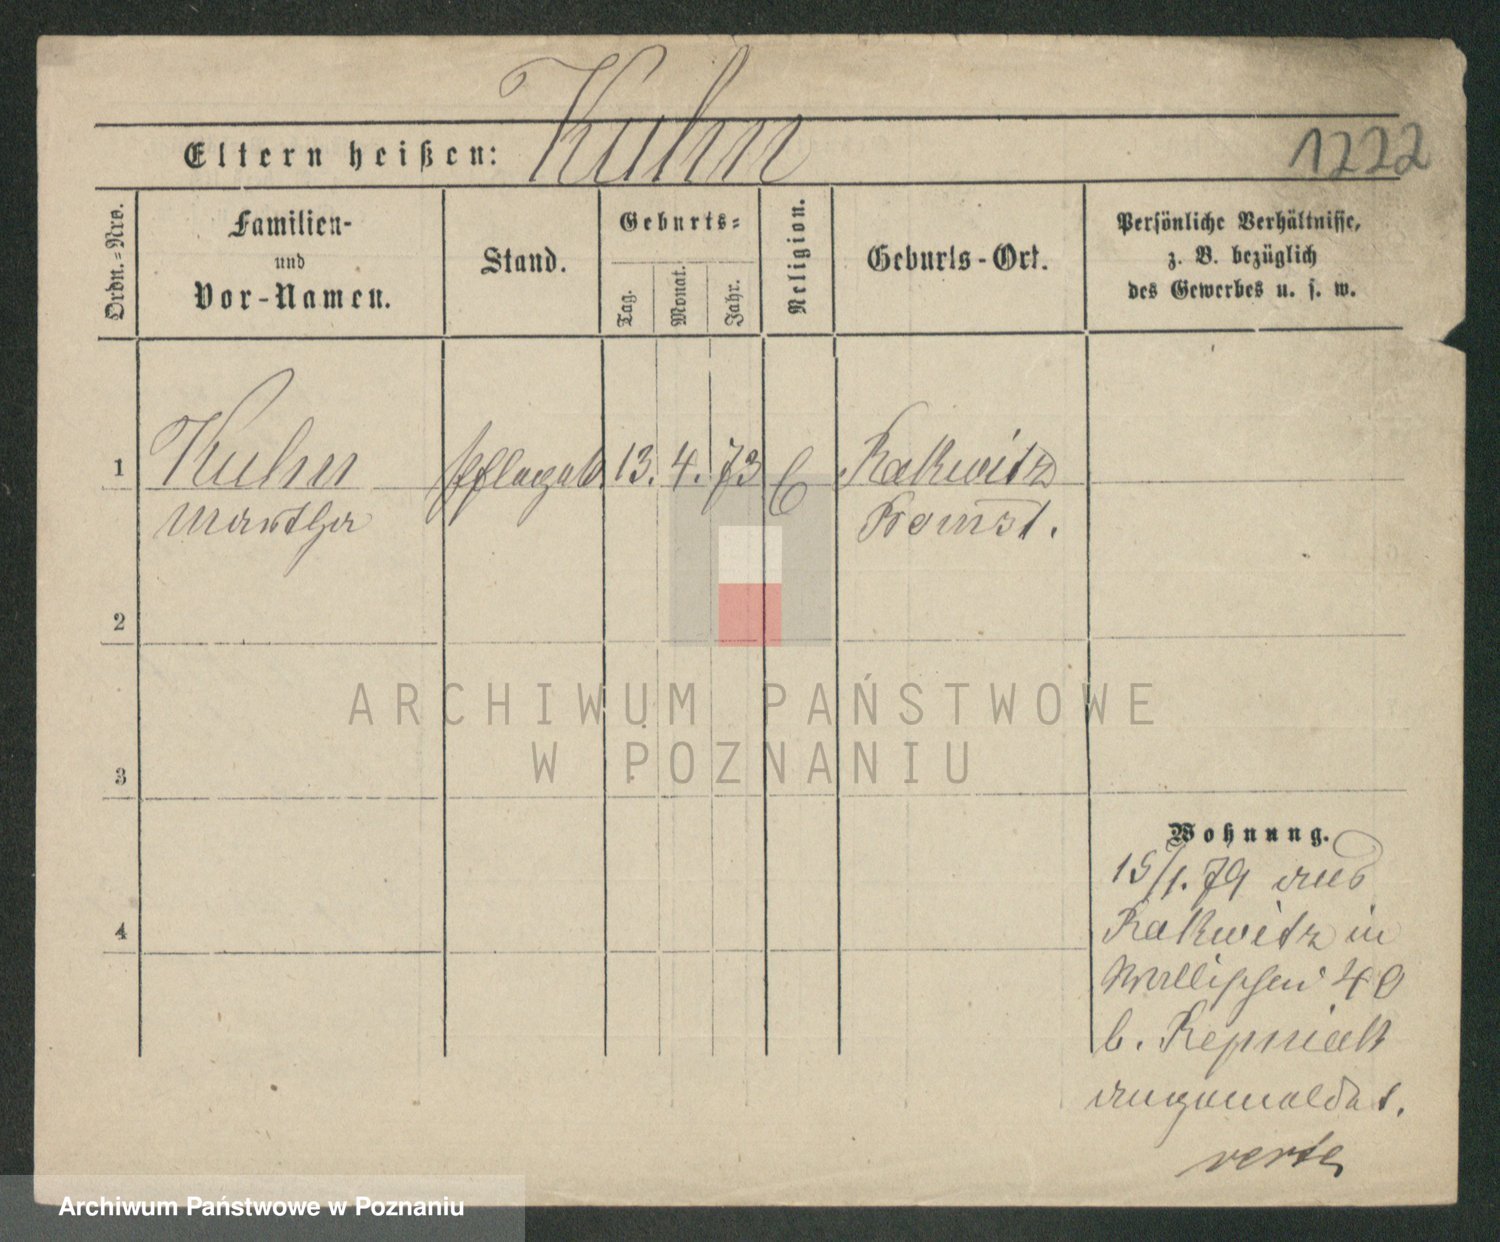 Kuhn
Eltern heißen:
1222
Ordn.-Nro.
Familien-
und
Vor-Namen.
Stand.
Geburts-
Tag.
Monat.
Jahr.
Religion.
Geburts-Ort.
Persönliche Verhältnisse,
z. B. bezüglich
des Gewerbes u. s. w.
1
Kuhn
13. 4. 73
Rakwitz
Martha
Bomst.
2
3
ARCHIWUM PAŃSTWOWE
W POZNANIU
4
Wohnung.
15/1. 79 aus
Rakwitz in
Wallischei 40
b. Repniak
angemeldet.
verte
Archiwum Państwowe w Poznaniu